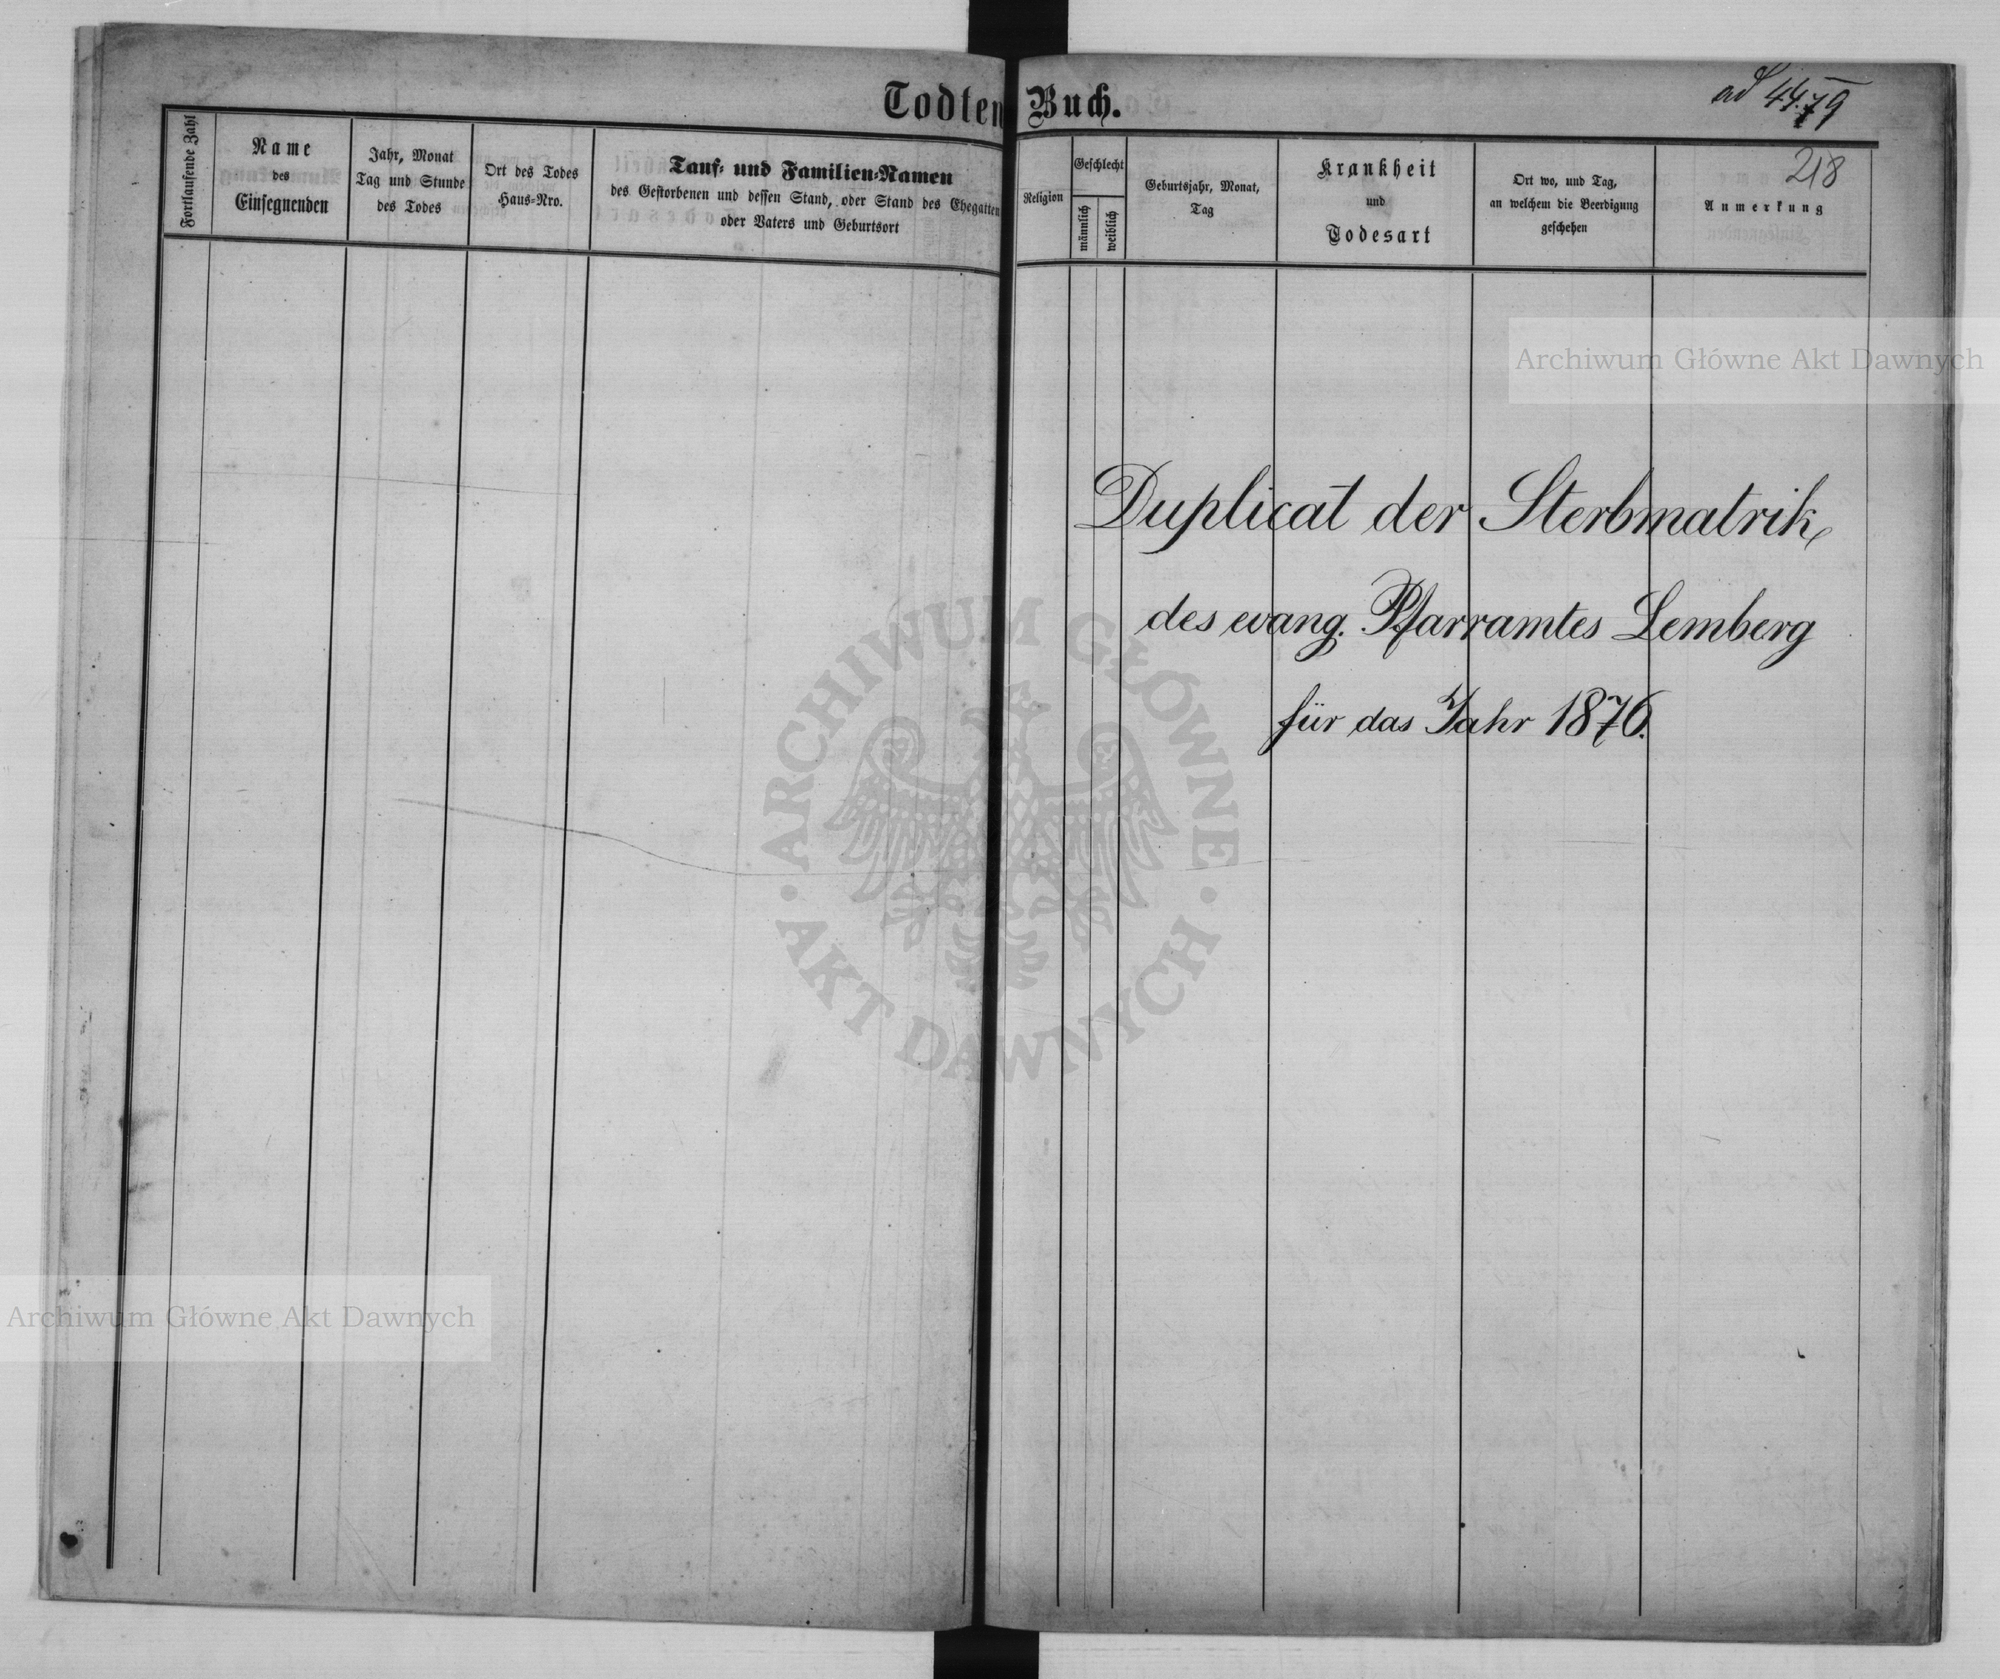 Todten Buch.
ad 44.79
218
Fortlaufende Zahl
Name
des
Einsegnenden
Jahr, Monat
Tag und Stunde
des Todes
Ort des Todes
Haus-Nro.
Tauf- und Familien-Namen
des Gestorbenen und dessen Stand, oder Stand des Ehegatten
oder Vaters und Geburtsort
Religion
Geschlecht
männlich
weiblich
Geburtsjahr, Monat,
Tag
Krankheit
und
Todesart
Ort wo, und Tag,
an welchem die Beerdigung
geschehen
Anmerkung
Archiwum Główne Akt Dawnych
Duplicat der Sterbmatrik
des evang. Pfarramtes Lemberg
für das Jahr 1876.
ARCHIWUM GŁÓWNE
AKT DAWNYCH
Archiwum Główne Akt Dawnych